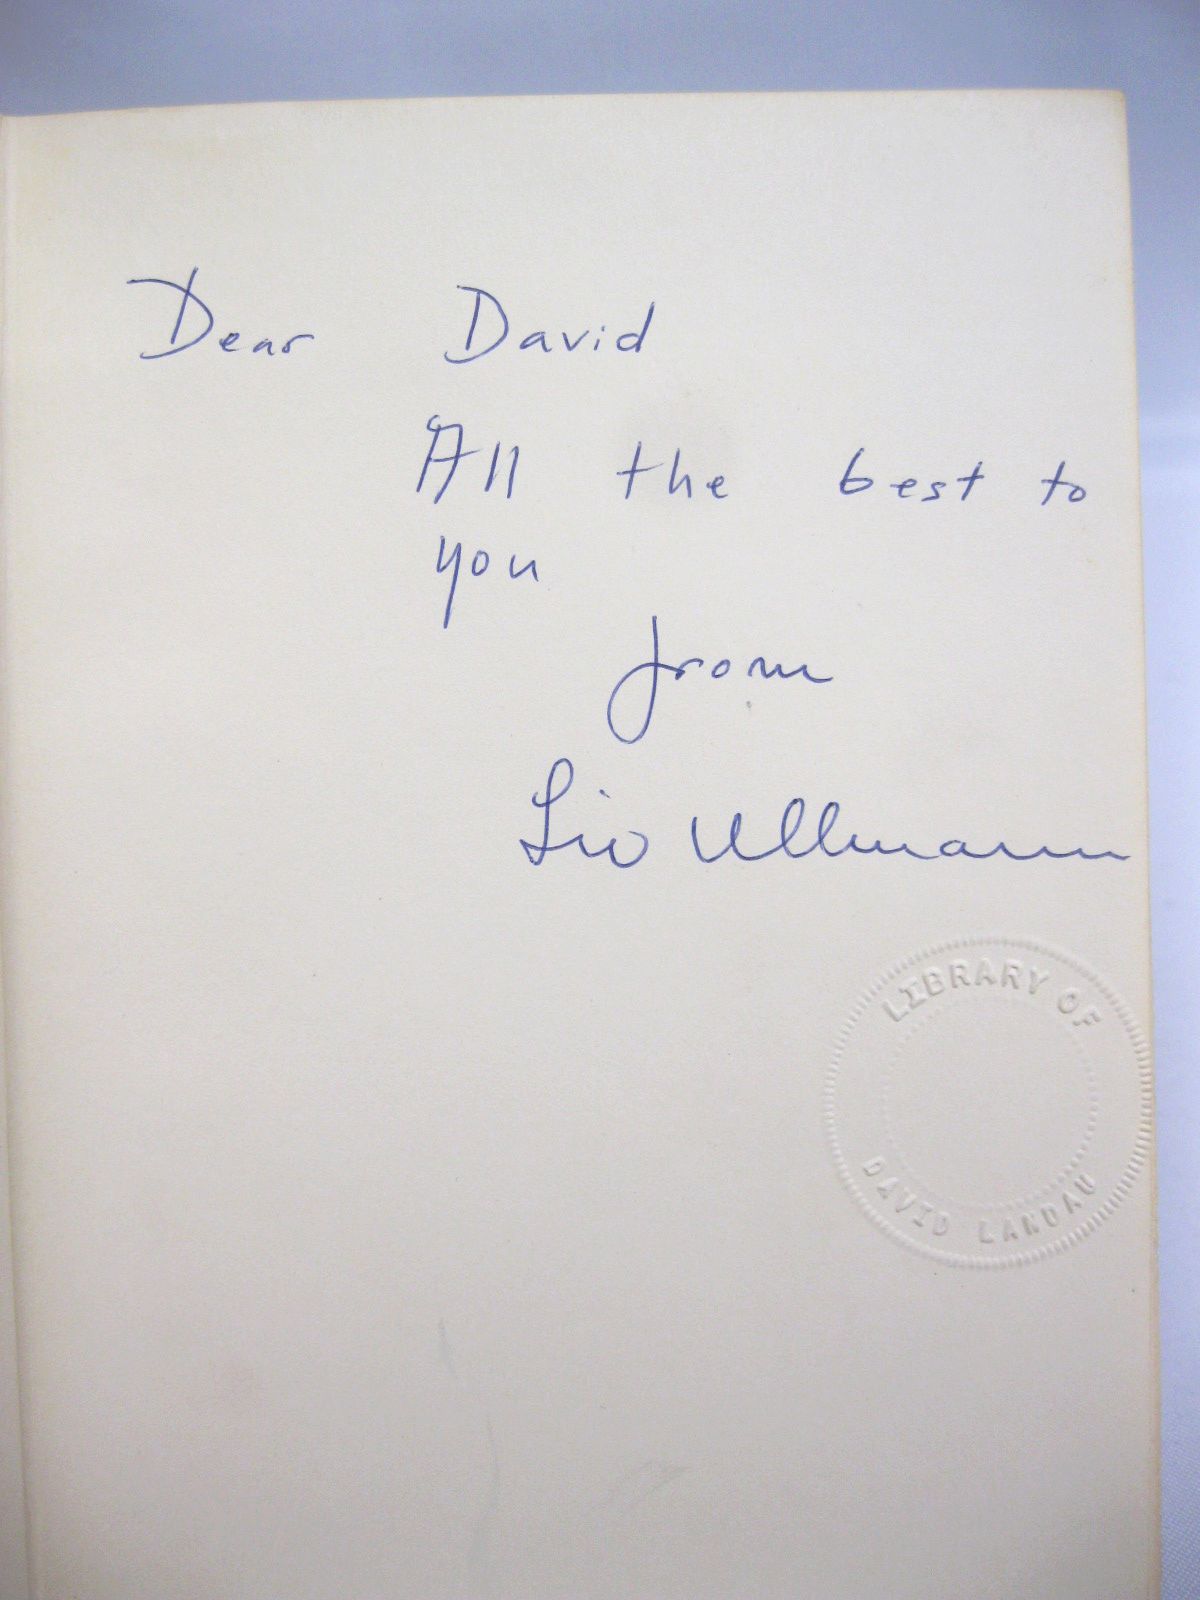 Dear David
All the best to
you
from
Liv Ullmann
LIBRARY OF
DAVID LANDAU